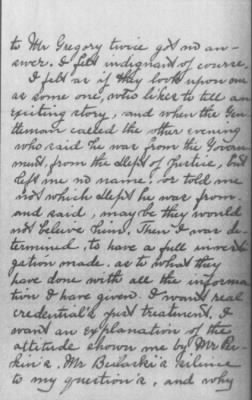 to Mr Gregory twice got no an-
swer. I felt indignant of course.
I felt as if they look upon one
as some one, who likes to tell an
exciting story, and when the Gen-
tleman called the other evening
who said he was from the Govern-
ment, from the Dept of Justice, but
left me no name, or told me
not which dept he was from.
and said, may be they would
not believe him. Then I was de-
termined to have a full investi-
gation made. as to what they
have done with all the informa-
tion I have given. I want real
credential's just treatment. I
want an explanation of the
attitude shown me by Mr
Mr silence
to my question's, and why